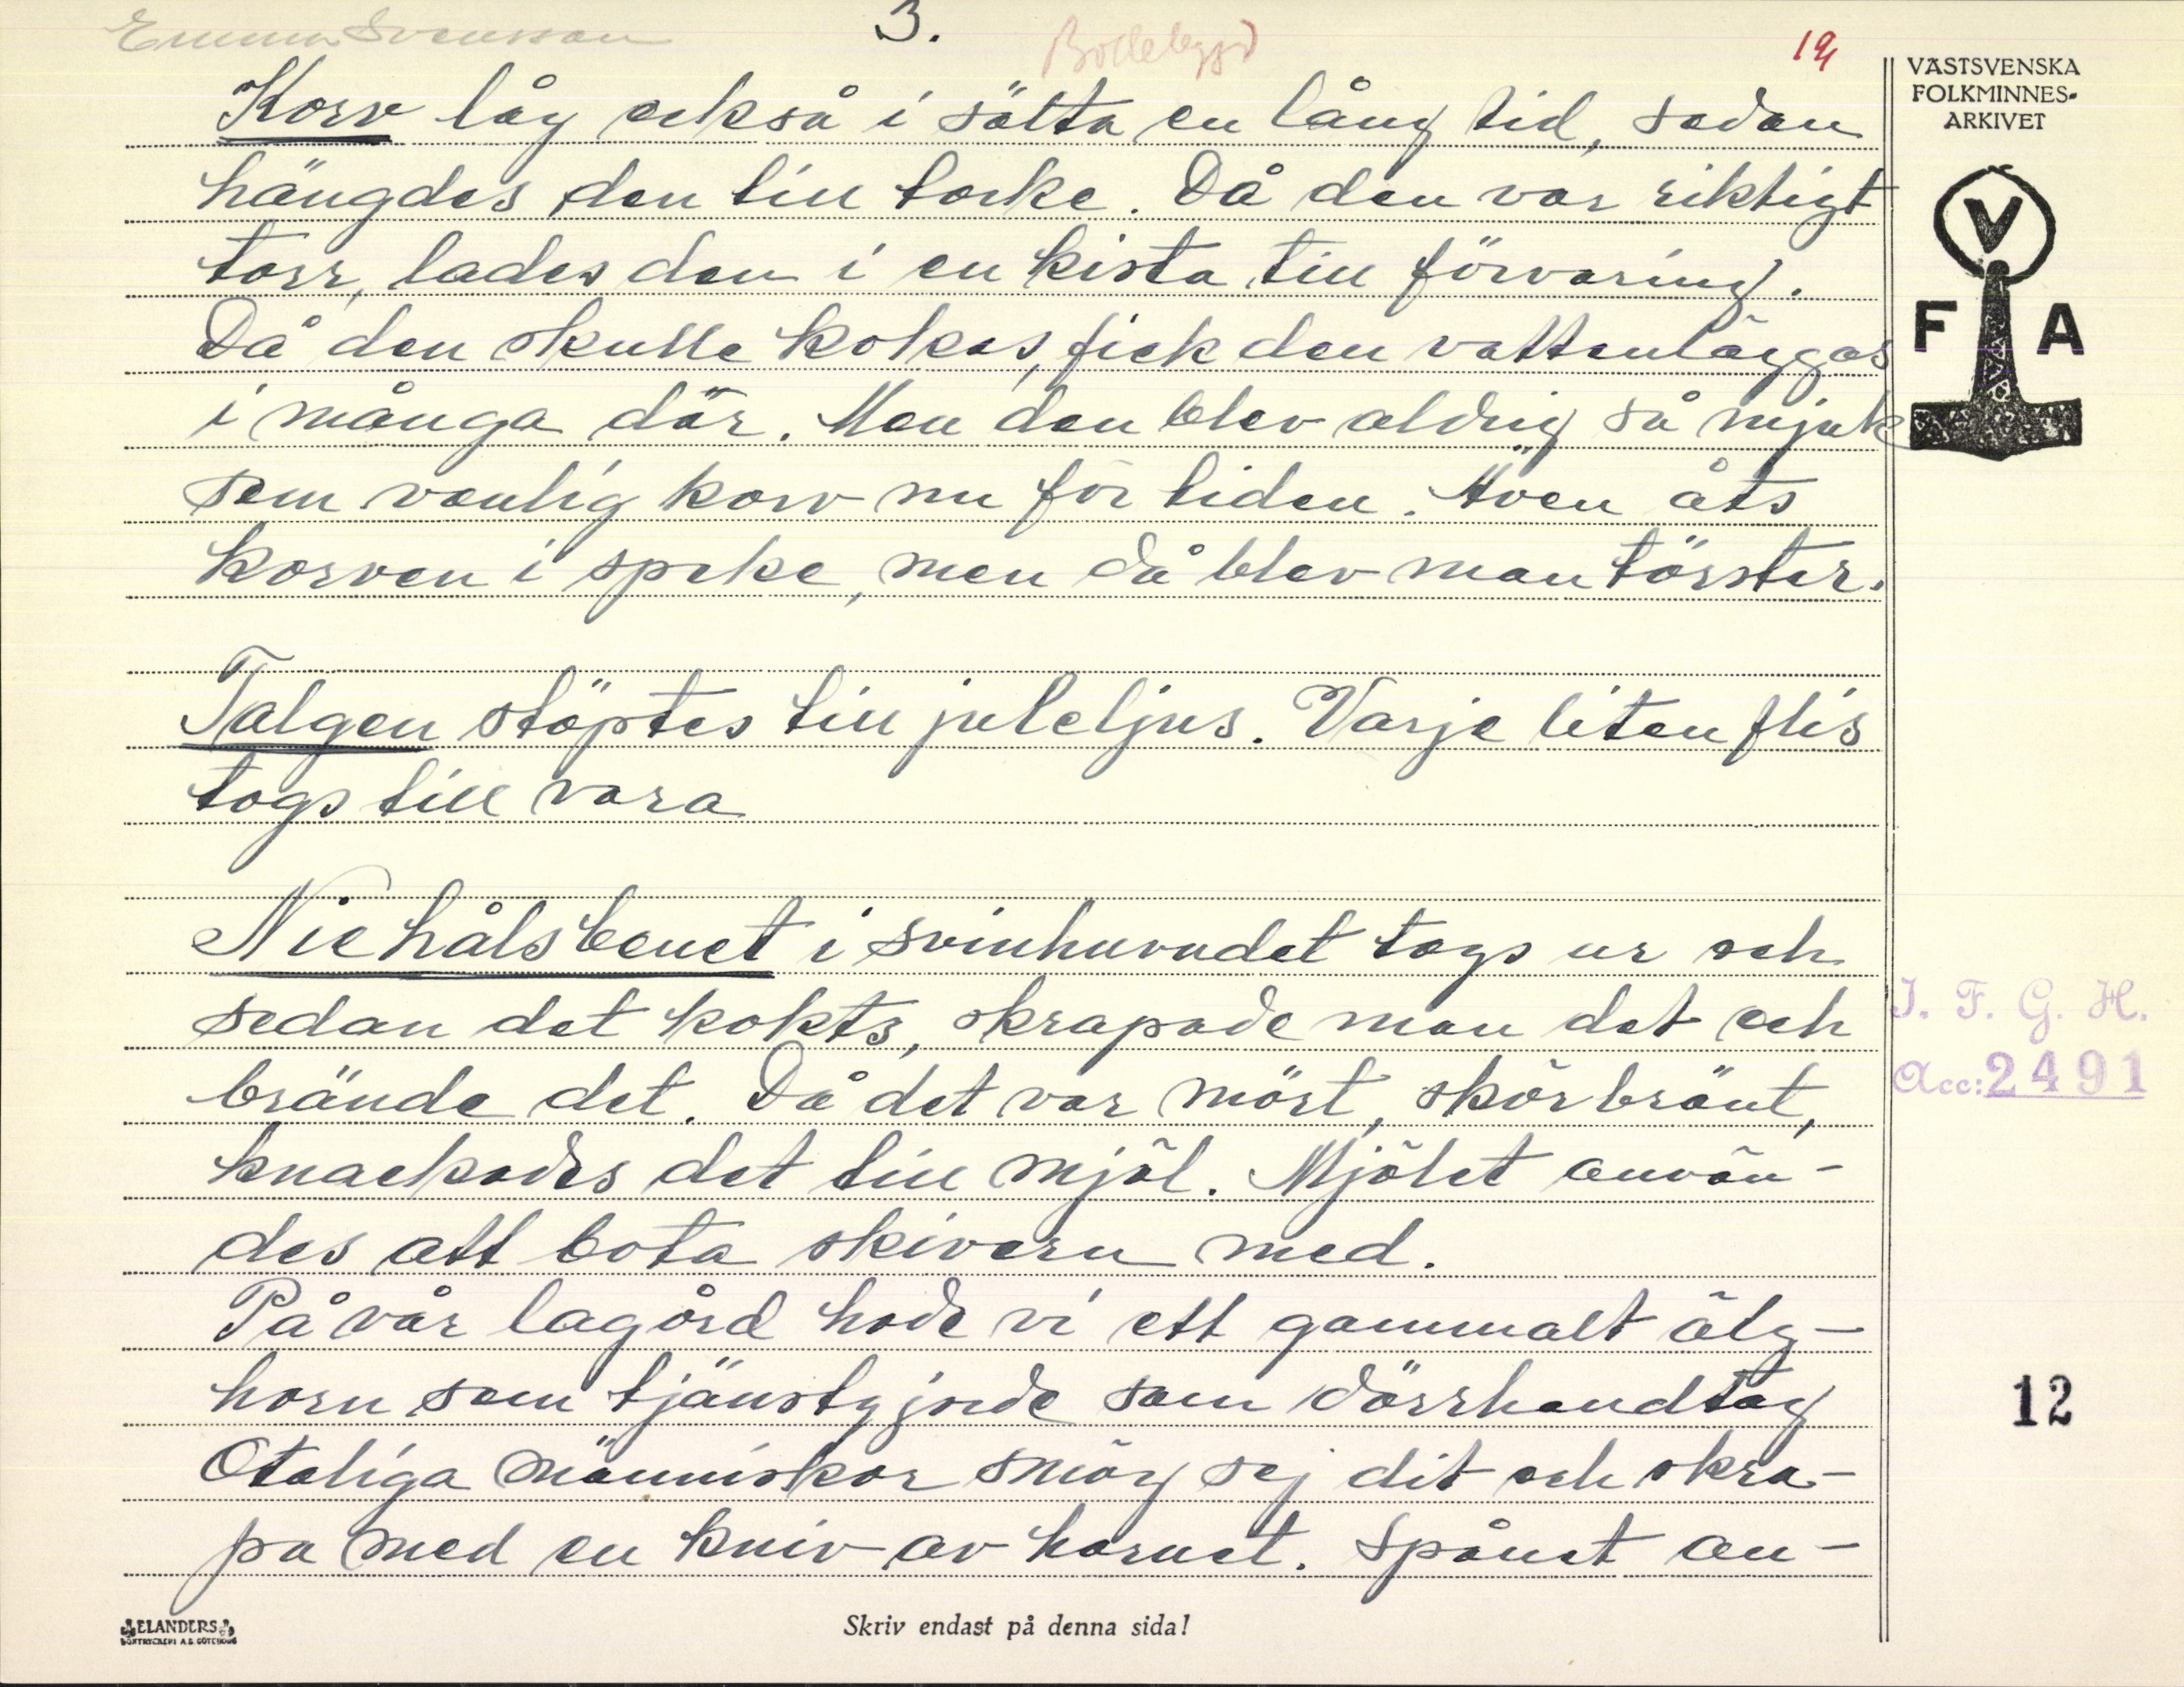 Emma Svensson 3. Bollebygd 19/1
VÄSTSVENSKA
FOLKMINNES-
ARKIVET
V
F A
Korv låg också i sälta en lång tid, sedan
hängdes den till torke. Då den var riktigt
torr, lades den i en kista till förvaring.
Då den skulle kokas, fick den vattenläggas
i många dar. Men den blev aldrig så mjuk
som vanlig korv nu för tiden. Även åts
korven i speke, men då blev man törster.
Talgen stöptes till juleljus. Varje liten flis
togs till vara
Niehålsbenet i svinhuvudet togs ur och
sedan det kokts, skrapade man det och
brände det. Då det var mört, skörbränt,
knackades det till mjöl. Mjölet använ-
des att bota skivern med.
På vår lagård hade vi ett gammalt älg-
horn som tjänstgjorde som dörrhandtag
Otaliga människor smög sej dit och skra-
pa med en kniv av hornet. Spånet an-
I. F. G. H.
Acc: 2491
12
ELANDERS
BOKTRYCKERI A.B. GÖTEBORG
Skriv endast på denna sida!